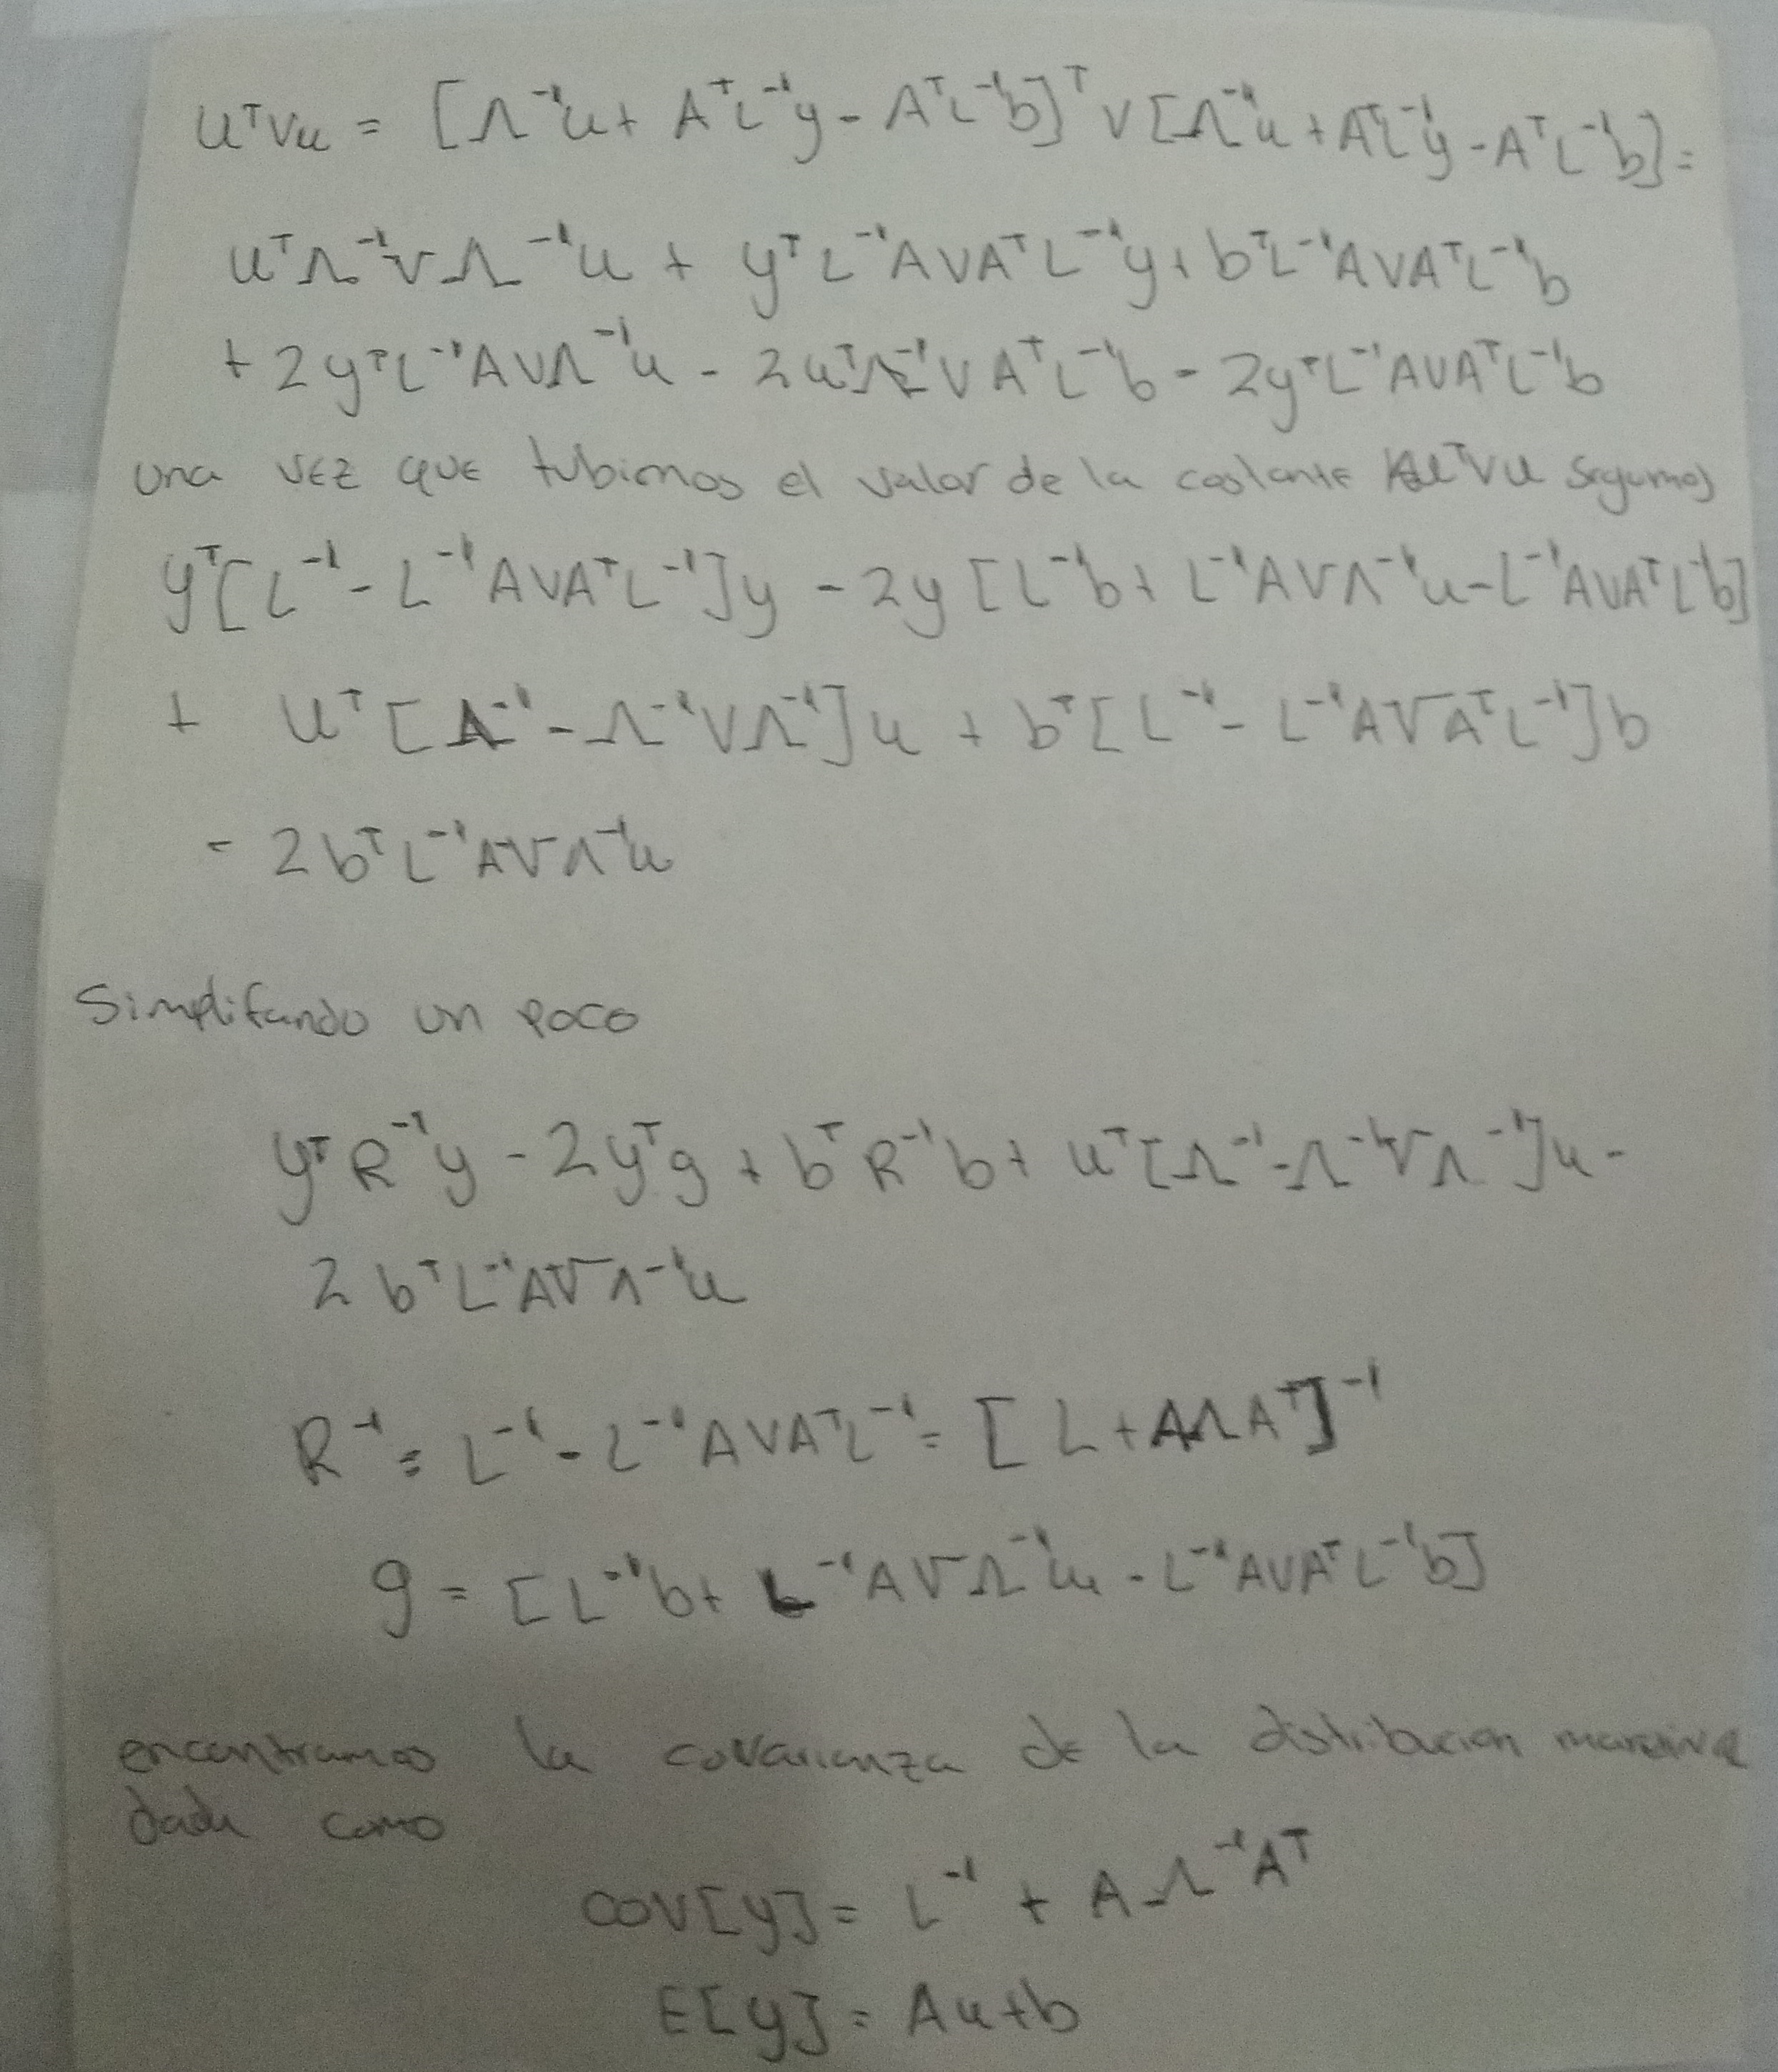 uᵀVu = [Λ⁻¹u + AᵀL⁻¹y - AᵀL⁻¹b]ᵀ V [Λ⁻¹u + AᵀL⁻¹y - AᵀL⁻¹b] =
uᵀΛ⁻¹VΛ⁻¹u + yᵀL⁻¹AVAᵀL⁻¹y + bᵀL⁻¹AVAᵀL⁻¹b
+ 2yᵀL⁻¹AVΛ⁻¹u - 2uᵀΛ⁻¹VAᵀL⁻¹b - 2yᵀL⁻¹AVAᵀL⁻¹b
una vez que tubimos el valor de la costante uᵀVu segumos
yᵀ[L⁻¹ - L⁻¹AVAᵀL⁻¹]y - 2y[L⁻¹b + L⁻¹AVΛ⁻¹u - L⁻¹AVAᵀL⁻¹b]
+ uᵀ[Λ⁻¹ - Λ⁻¹VΛ⁻¹]u + bᵀ[L⁻¹ - L⁻¹AVAᵀL⁻¹]b
- 2bᵀL⁻¹AVΛ⁻¹u
Simplifando un poco
yᵀR⁻¹y - 2yᵀg + bᵀR⁻¹b + uᵀ[Λ⁻¹ - Λ⁻¹VΛ⁻¹]u -
2bᵀL⁻¹AVΛ⁻¹u
R⁻¹ = L⁻¹ - L⁻¹AVAᵀL⁻¹ = [L + AΛAᵀ]⁻¹
g = [L⁻¹b + L⁻¹AVΛ⁻¹u - L⁻¹AVAᵀL⁻¹b]
encontramos la covarianza de la distribucion
dada como
cov[y] = L⁻¹ + AΛ⁻¹Aᵀ
E[y] = Au+b